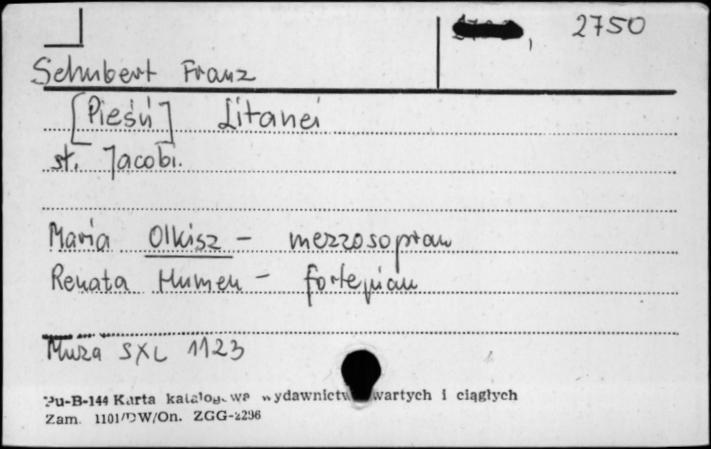 2750
Schubert Franz
[Pieśń] Litanei
st. Jacobi.
Maria Olkisz - mezzosopran
Renata Humen - fortepian
Muza SXL 1123
Pu-B-144 Karta katalogowa wydawnictw zwartych i ciągłych
Zam. 1101/DW/On. ZGG-2296